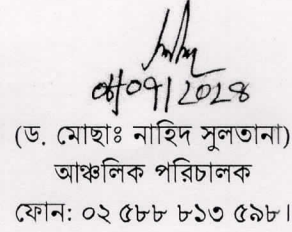 ০৮/০৭/২০২৪
(ড. মোছাঃ নাহিদ সুলতানা)
আঞ্চলিক পরিচালক
ফোন: ০২ ৫৮৮ ৮১৩ ৫৯৮।